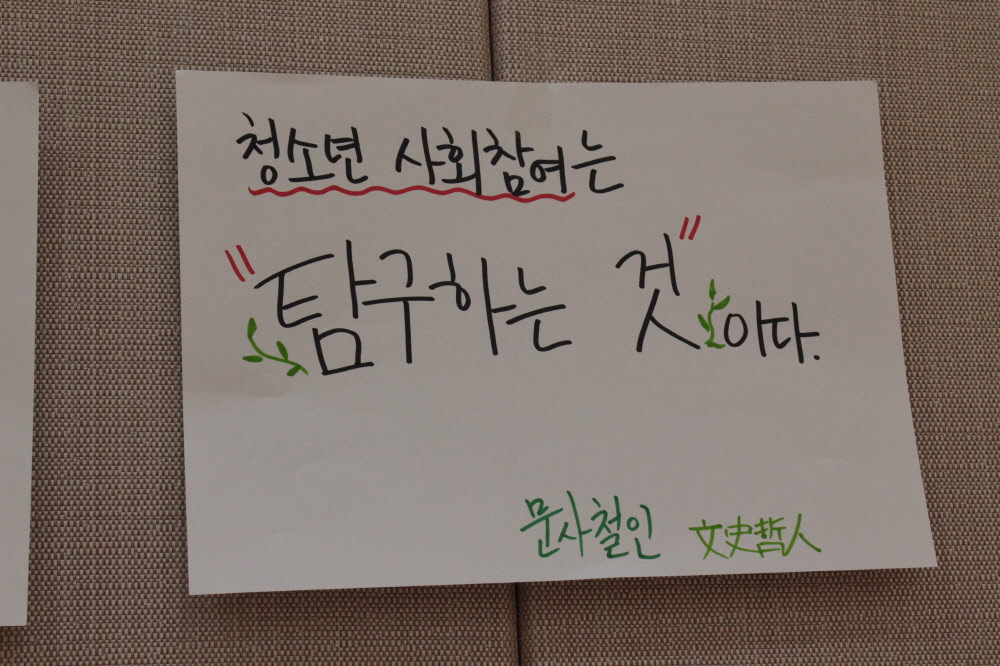 청소년 사회참여는
"탐구하는 것"이다.
문사철인 文史哲人